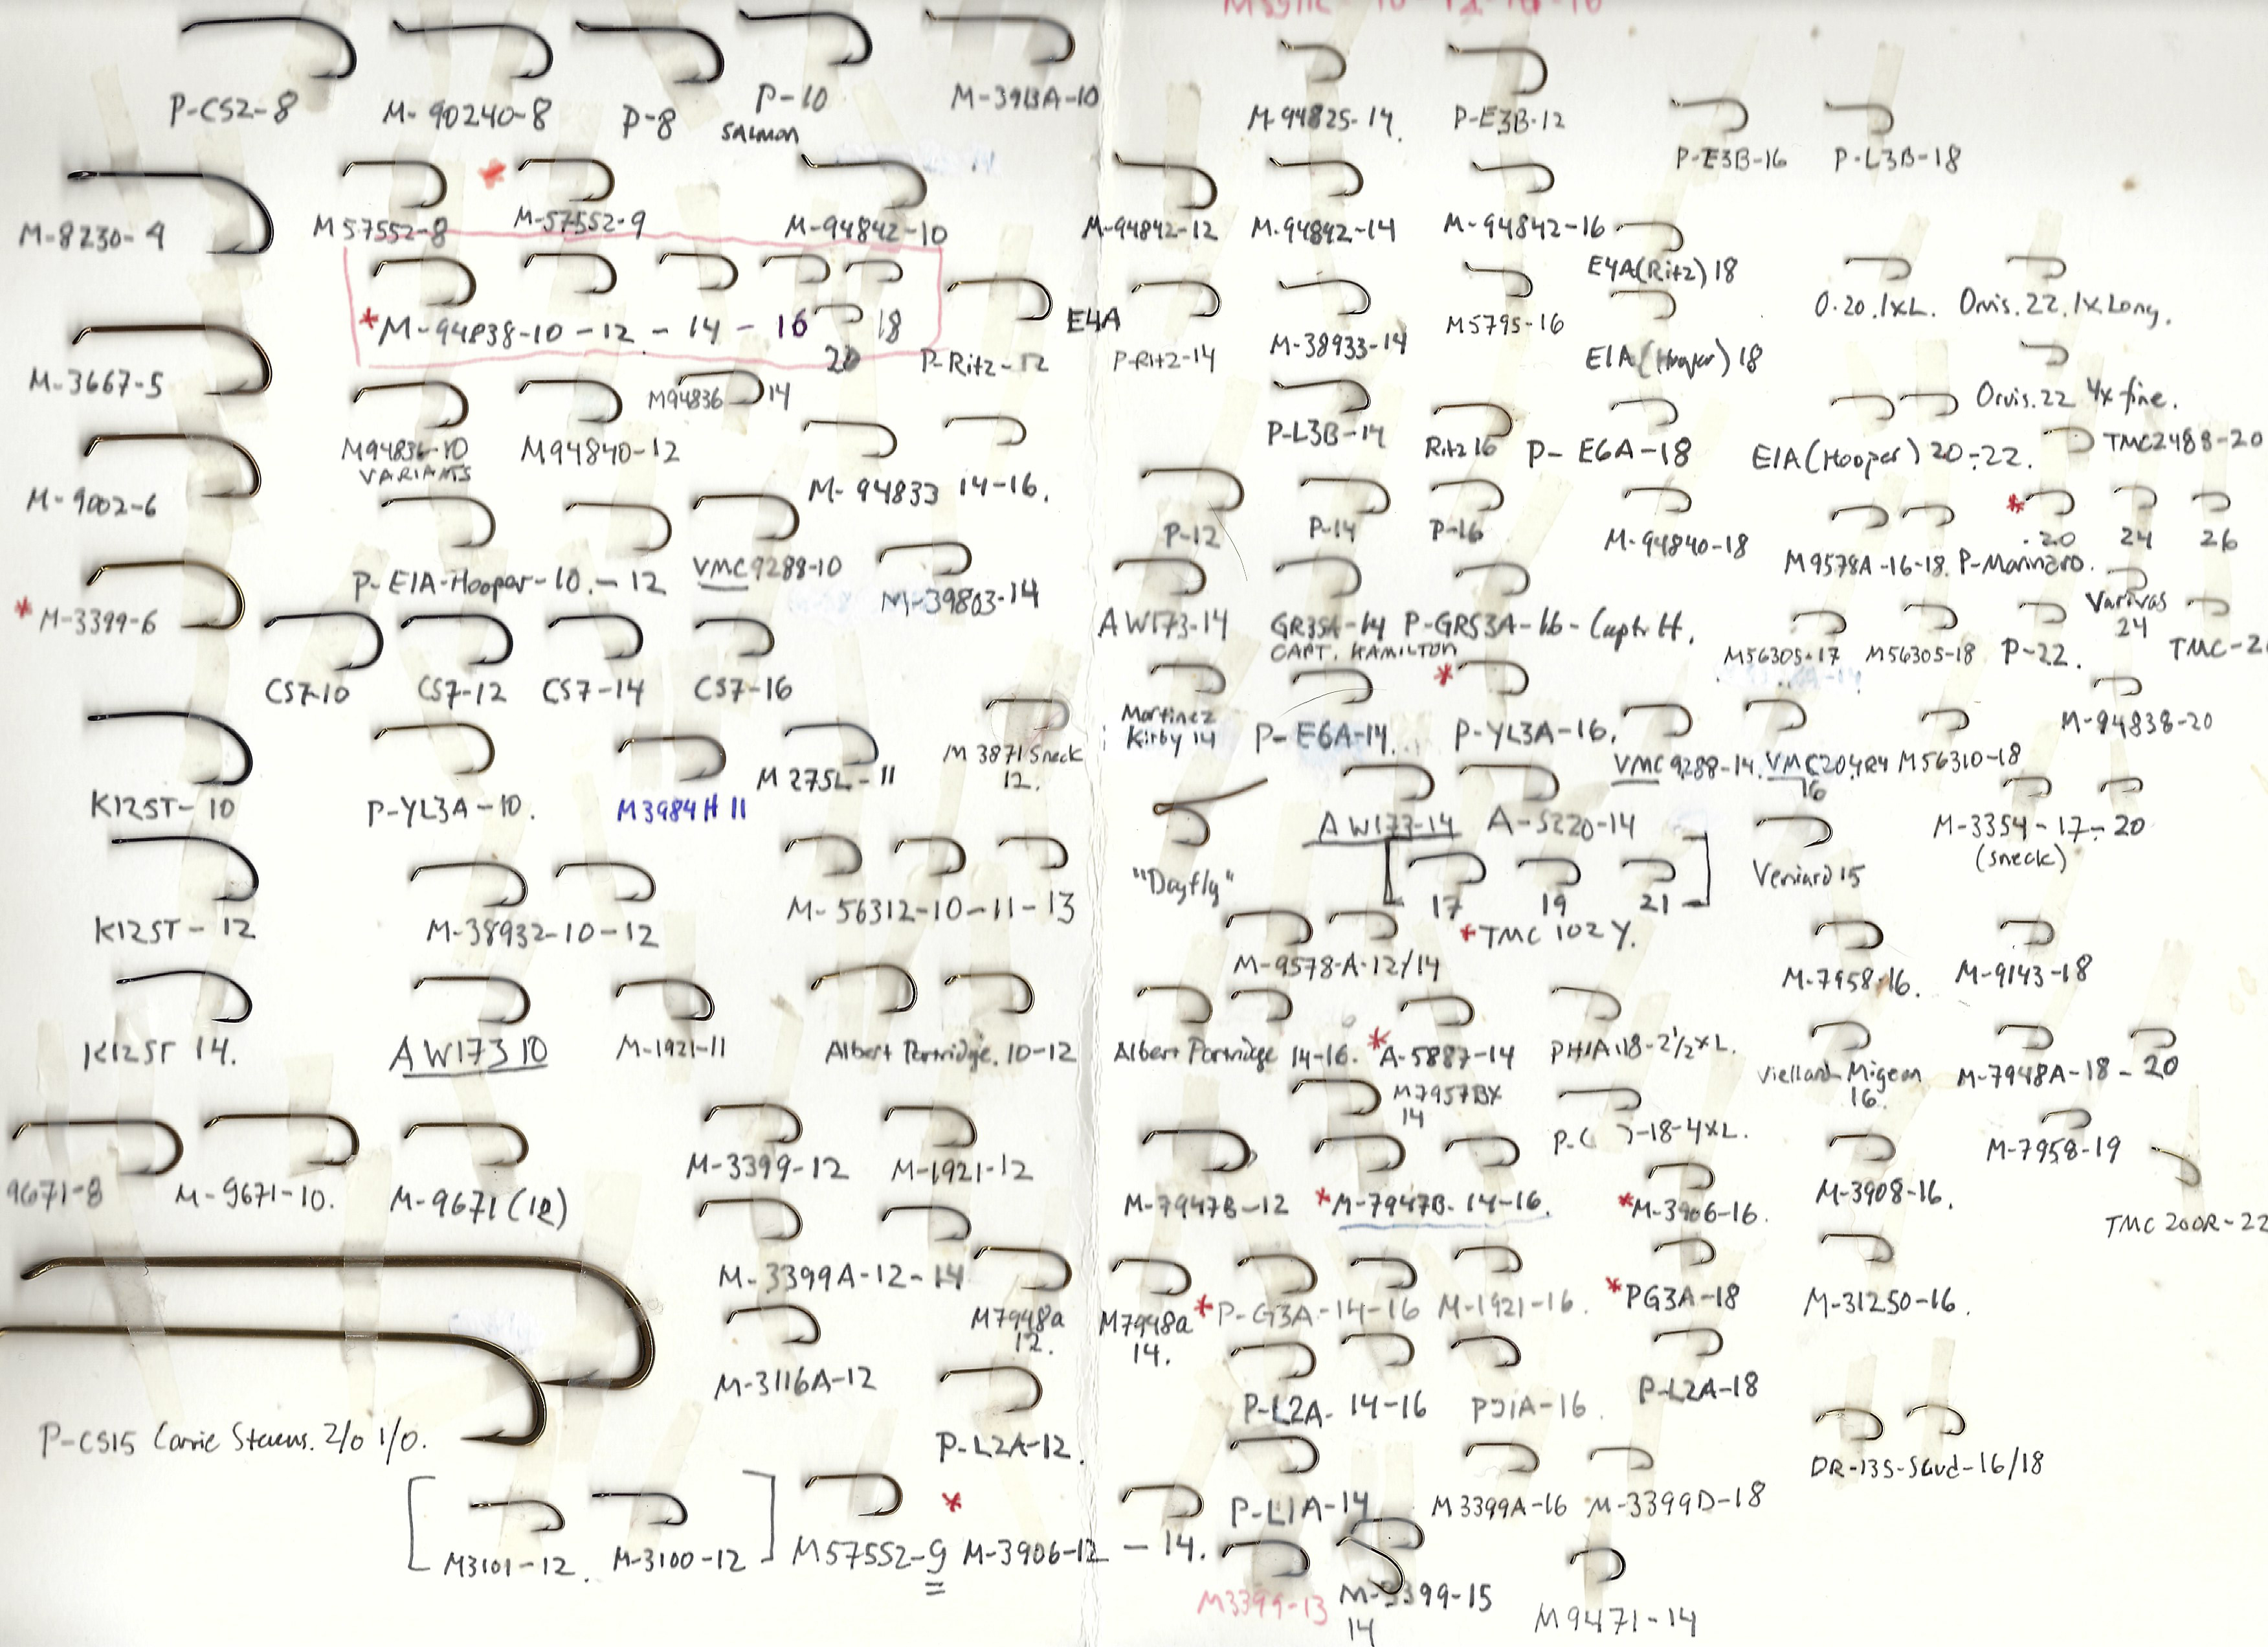 P-CS2-8
M-90240-8
P-8
P-10
SALMON
M-3913A-10
M-94825-14.
P-E3B-12
P-E3B-16
P-L3B-18
M-8230-4
M57552-8
M-57552-9
M-94842-10
M-94842-12
M-94842-14
M-94842-16
E4A(Ritz)18
*M-94838-10-12-14-16 18
20
P-Ritz-12
E4A
P-Ritz-14
M-38933-14
M5795-16
E1A(Hooper)18
O.20.1xL.
Orvis.22.1x Long.
M-3667-5
M94836-10
VARIANTS
M94840-12
M94836 14
M-94833 14-16.
P-L3B-14
Ritz16
P-E6A-18
E1A(Hooper)20-22.
Orvis.22 4x fine.
TMC2488-20
M-9002-6
P-E1A-Hooper-10.-12
VMC9288-10
M-39803-14
P-12
P-14
P-16
M-94840-18
M9578A-16-18.
P-Marinaro.
*.20 24 26
*M-3399-6
CS7-10
CS7-12
CS7-14
CS7-16
AW173-14
GR3SA-14
CAPT. HAMILTON
P-GRS3A-16-Capt. H.
M56305-17
M56305-18
P-22.
Varivas
24
K12ST-10
P-YL3A-10.
M3984H 11
M275L-11
M3871 Sneck
12.
Martinez
Kirby 14
P-E6A-14
*P-YL3A-16.
VMC9288-14.
16
M56310-18
M-94838-20
K12ST-12
M-38932-10-12
M-56312-10-11-13
"Dayfly"
AW173-14
A-5220-14
17 19 21
*TMC 102Y.
Veniard 15
M-3354-17-20
(sneck)
K12ST 14.
AW173 10
M-1921-11
Albert Partridge. 10-12
M-9578-A-12/14
M-7958-16.
M-9143-18
Albert Partridge 14-16.
*A-5887-14
PH1A.18-2½xL.
Viellard Migeon
16.
M-7948A-18-20
9671-8
M-9671-10.
M-9671(12)
M-3399-12
M-1921-12
M7957BX
14
-18-4xL.
M-7958-19
M-7947B-12
*M-7947B-14-16.
*M-3906-16.
M-3908-16.
TMC 200R-22
M-3399A-12-14
M7948a
12.
M7948a
14.
*P-G3A-14-16
M-1921-16.
*PG3A-18
M-31250-16.
M-3116A-12
P-CS15 Carrie Stevens. 2/0 1/0.
P-L2A-12.
P-L2A-14-16
PJ1A-16.
P-L2A-18
DR-135-Scud-16/18
[M3101-12. M-3100-12]
M57552-9
*
M-3906-12-14.
P-L1A-14
M3399A-16
M-3399D-18
M3399-13
M-3399-15
14
M9471-14